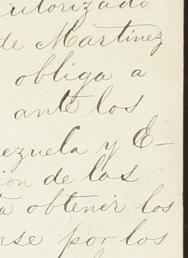 utorizado
de Martinez
obliga a
ante los
ezuela y E-
ion de las
a obtener los
rse por los